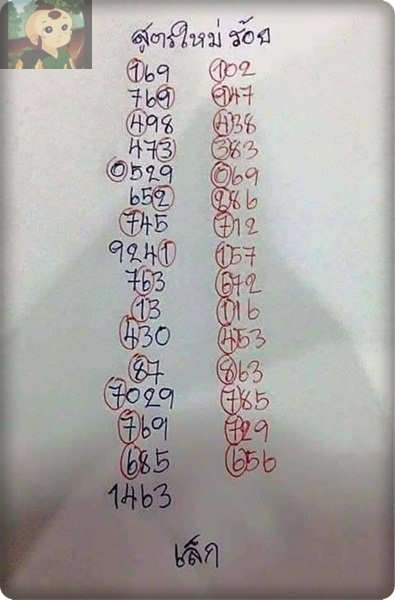 สูตรใหม่ ร้อย
169 102
769 947
498 438
473 383
0529 069
652 286
745 712
9241 157
763 672
13 116
430 453
87 863
7029 785
769 729
685 656
1463
เล็ก